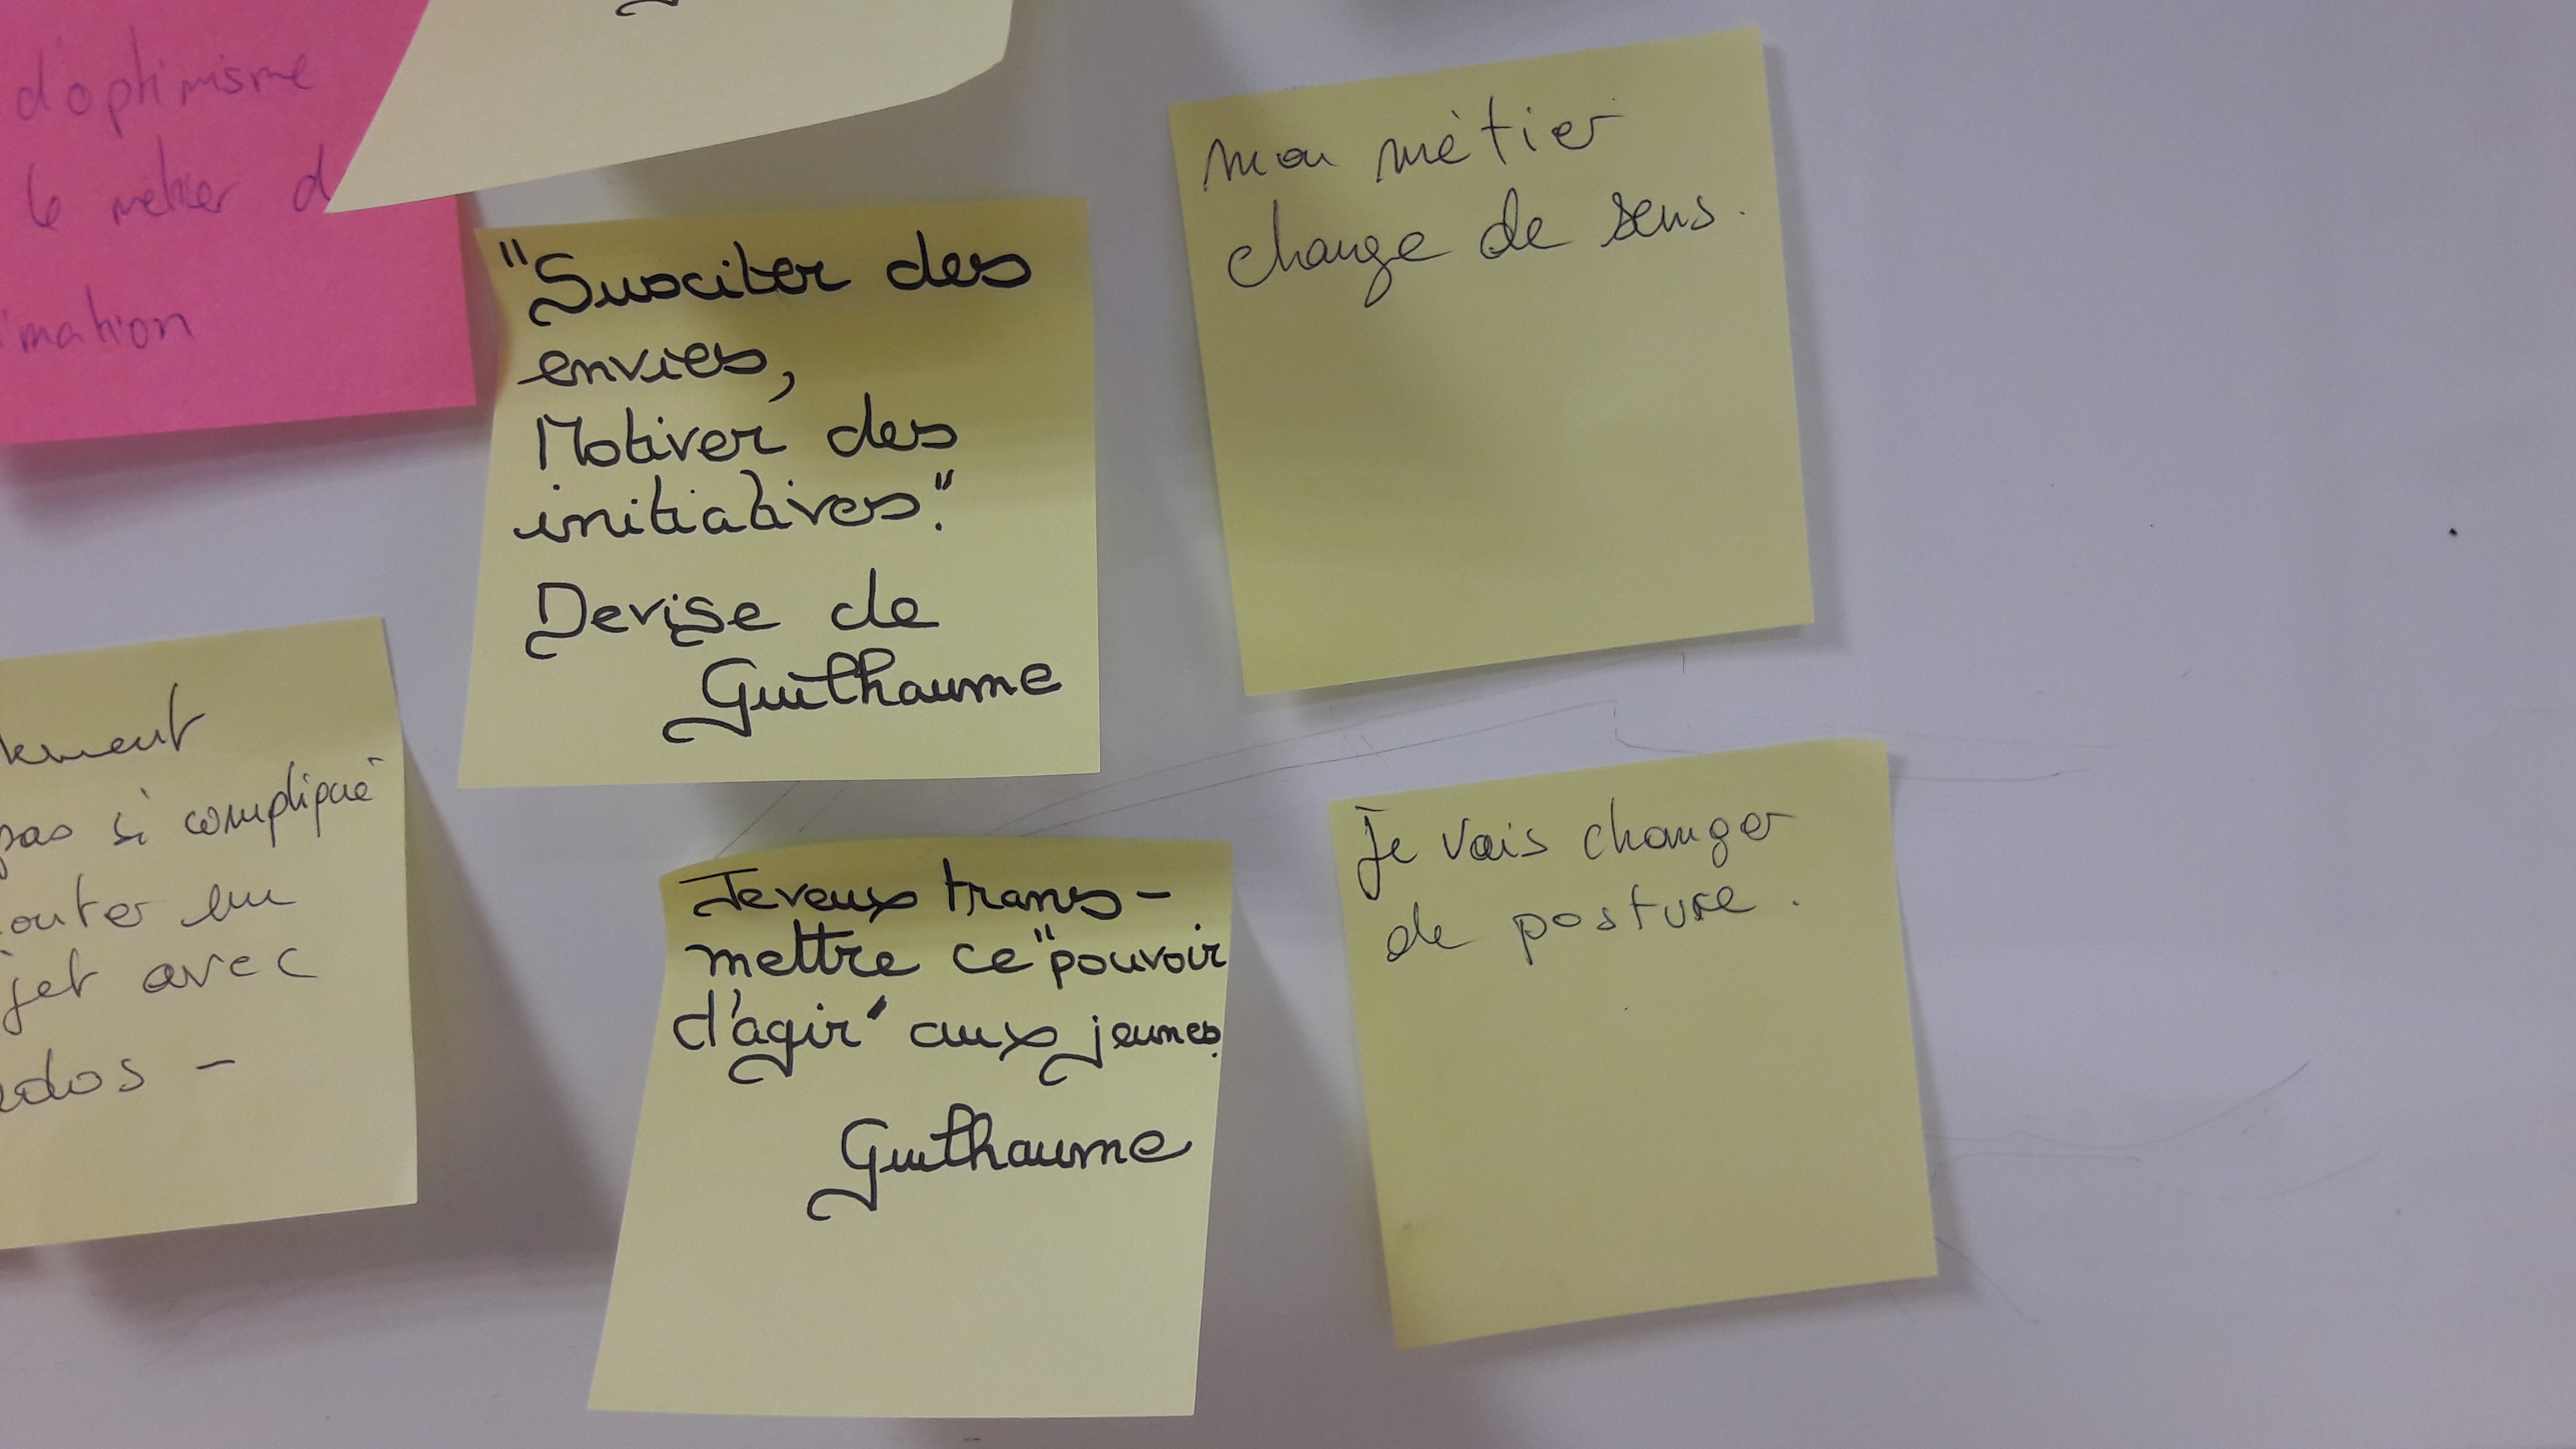 d'optimisme
le métier d
imation
"Susciter des
envies,
Motiver des
initiatives".
Devise de
Guilhaume
mon métier
change de sens.
kement
pas si compliqué
outer un
jet avec
ados -
Je veux trans-
mettre ce "pouvoir
d'agir" aux jeunes.
Guilhaume
je vais changer
de posture.